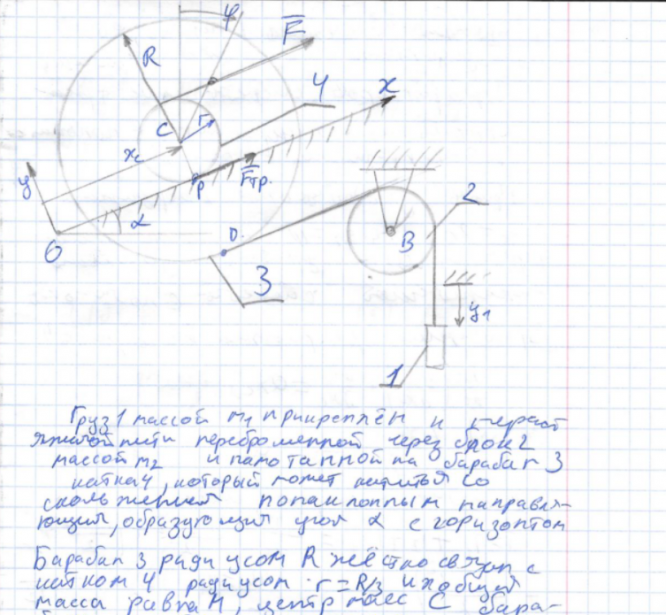 φ
F
R
4
x
C
r
x_c
y
P
F_тр.
α
О
D
3
B
2
y_1
1
Груз 1 массой m_1 прикреплён к
нити переброшенной через блок 2
массой m_2 и намотанной на барабан 3
катка 4, который может катиться со
скольжением по наклонным направля-
ющим, образующим угол α с горизонтом
Барабан 3 радиусом R жёстко связан с
катком 4 радиусом r = R/3 их общая
масса равна M, центр масс C бара-